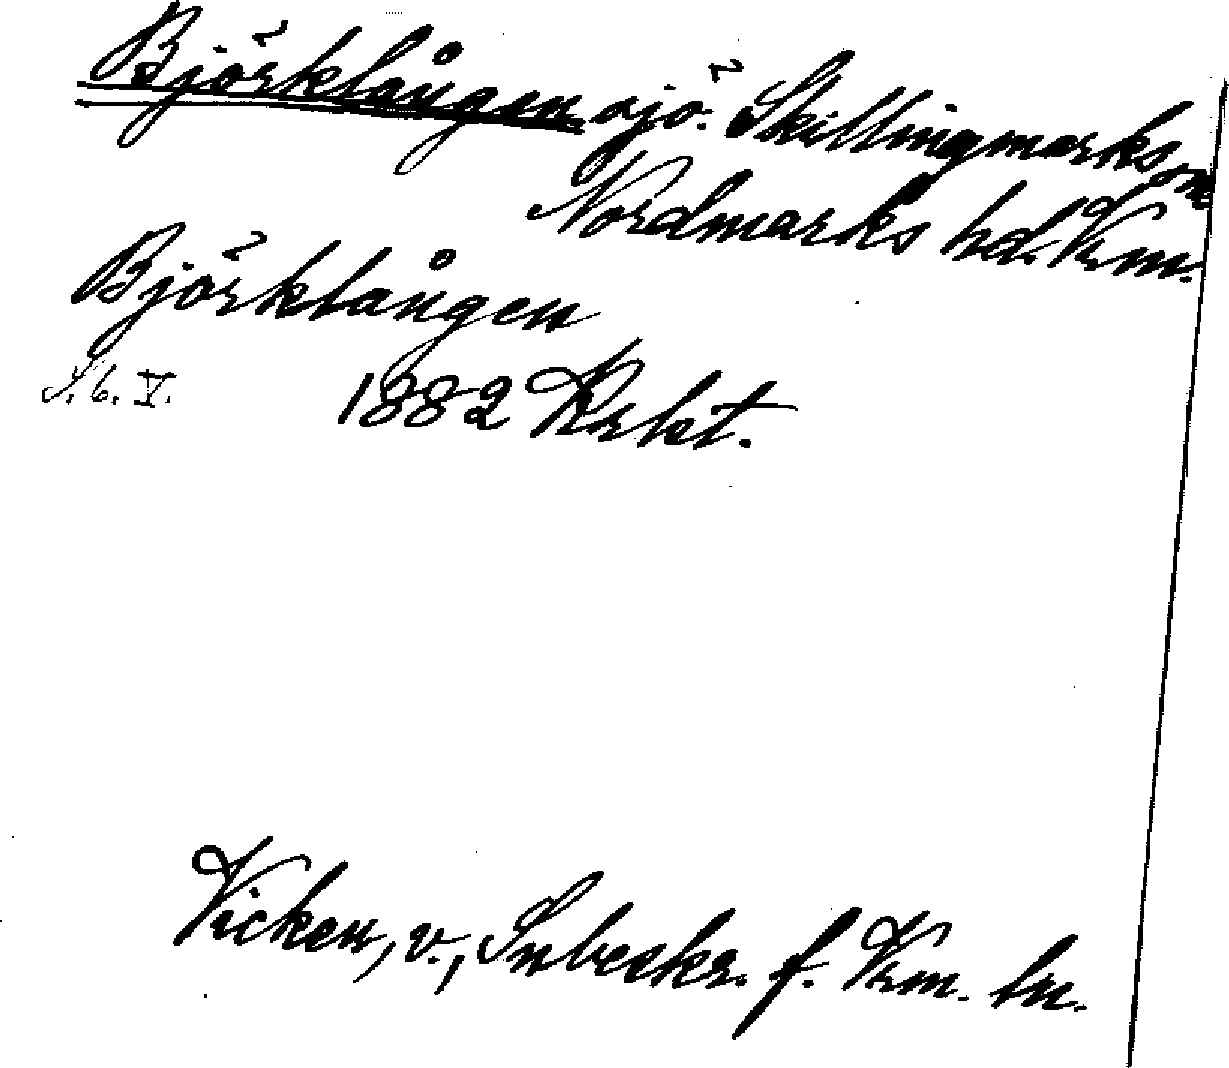 Björklången sjö. Skillingmarks sn
Nordmarks hd. Vrm.
Björklången
S. 6. V. 1882 Krbt.
Vicken, v., Snbeskr. f. Vrm. ln.